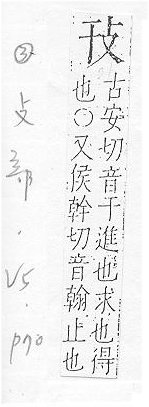 攼
古安切音干進也求也得
也〇又侯幹切音翰止也
③攴部.V5.